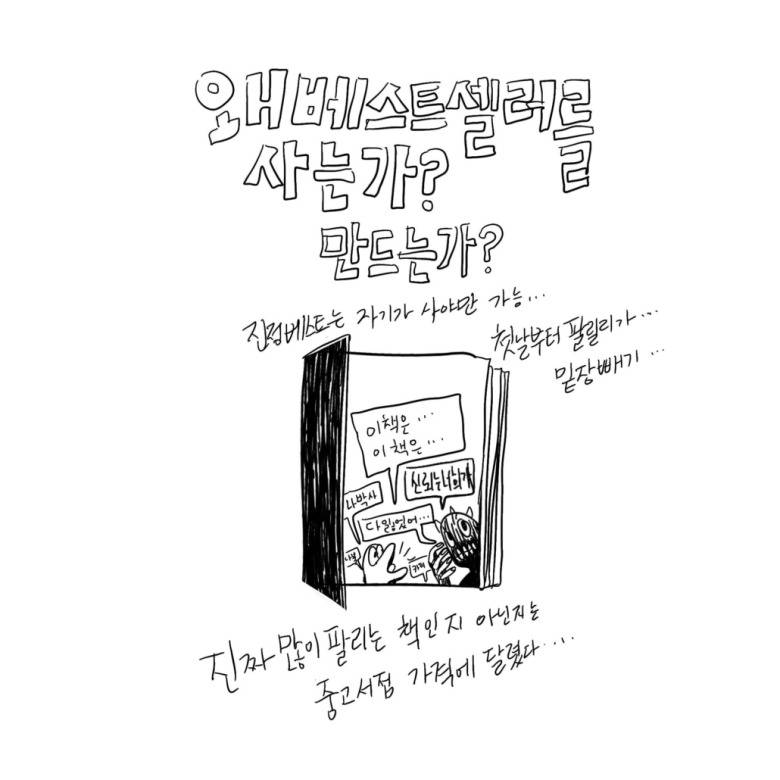 왜 베스트셀러를
사는가?
만드는가?
진정베스트는 자기가 사야만 가능...
첫날부터 팔릴리가...
밑장빼기...
이책은...
이 책은...
신뢰는너희가
나박사
다읽었어...
진짜 많이 팔리는 책인지 아닌지는
중고서점 가격에 달렸다....